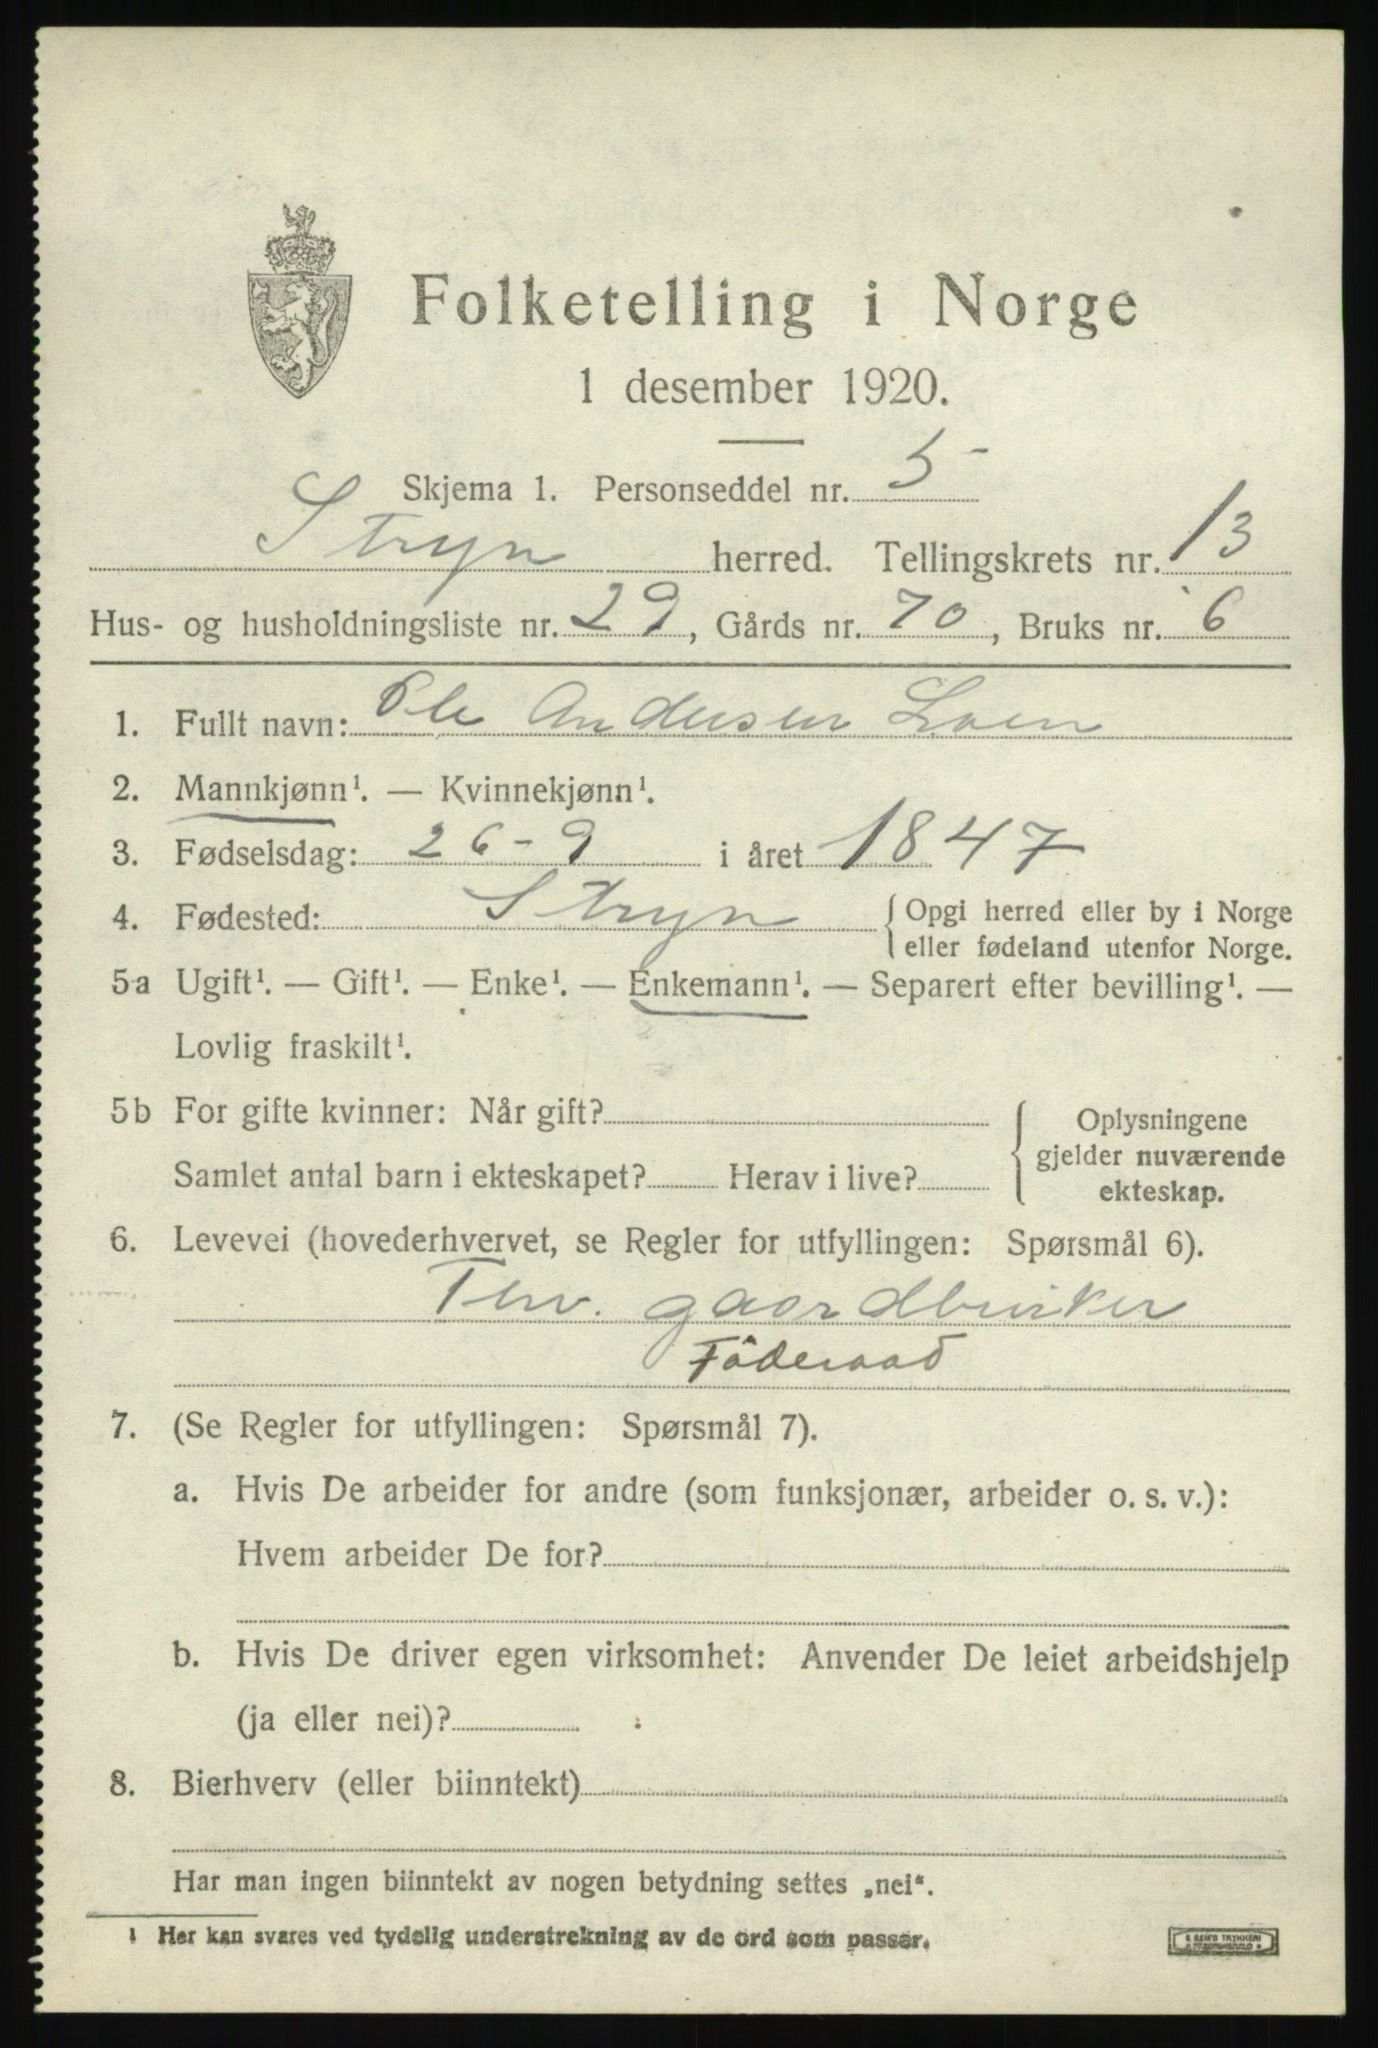 Folketelling i Norge
1 desember 1920.
Skjema 1. Personseddel nr. 5
Stryn herred. Tellingskrets nr. 13
Hus- og husholdningsliste nr. 29, Gårds nr. 70, Bruks nr. 6
1. Fullt navn: Ole Andersen Loen
2. Mannkjønn¹. — Kvinnekjønn¹.
3. Fødselsdag: 26-9 i året 1847
4. Fødested: Stryn { Opgi herred eller by i Norge
eller fødeland utenfor Norge.
5a Ugift¹. — Gift¹. — Enke¹. — Enkemann¹. — Separert efter bevilling¹. —
Lovlig fraskilt¹.
5b For gifte kvinner: Når gift?
Samlet antal barn i ekteskapet? Herav i live?
Oplysningene
gjelder nuværende
ekteskap.
6. Levevei (hovederhvervet, se Regler for utfyllingen: Spørsmål 6).
gaardbruker
Föderaad
7. (Se Regler for utfyllingen: Spørsmål 7).
a. Hvis De arbeider for andre (som funksjonær, arbeider o. s. v.):
Hvem arbeider De for?
b. Hvis De driver egen virksomhet: Anvender De leiet arbeidshjelp
(ja eller nei)?
8. Bierhverv (eller biinntekt)
Har man ingen biinntekt av nogen betydning settes „nei“.
1 Her kan svares ved tydelig understrekning av de ord som passer.